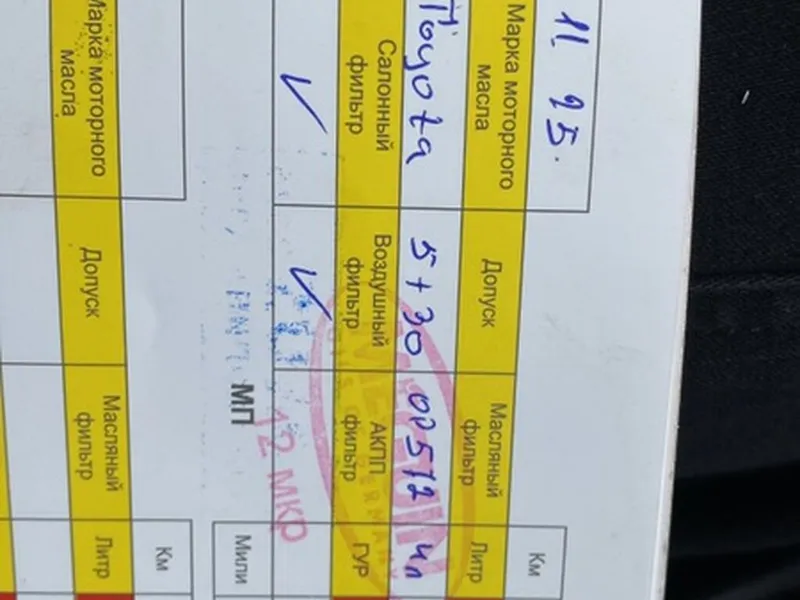 11. 25.
Км
Марка моторного масла
Допуск
Масляный фильтр
Литр
Toyota
5+30
OP572
4л
Салонный фильтр
Воздушный фильтр
АКПП фильтр
ГУР
✓
✓
МП
12 мкр
Мили
Км
Марка моторного масла
Допуск
Масляный фильтр
Литр